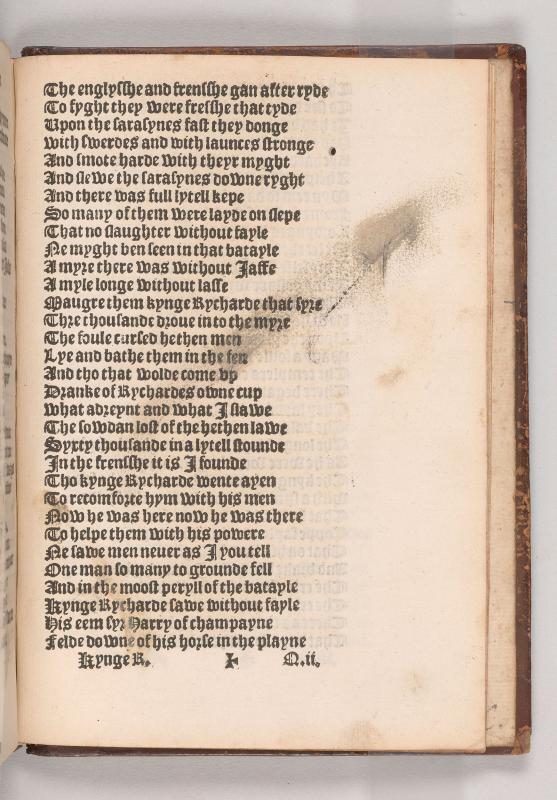 The englysshe and frensshe gan after ryde
To fyght they were fresshe that tyde
Upon the sarasynes fast they donge
with swerdes and with launces stronge
And smote harde with theyr myght
And slewe the sarasynes downe ryght
And there was full lytell kepe
So many of them were layde on slepe
That no slaughter without fayle
Ne myght ben seen in that batayle
A myre there was without Jaffe
A myle longe without lasse
Maugre them kynge Rycharde that syre
Thre thousande droue in to the myre
The foule cursed hethen men
Lye and bathe them in the fen
And tho that wolde come vp
Dranke of Rychardes owne cup
what adreynt and what J slawe
The sowdan lost of the hethen lawe
Syxty thousande in a lytell stounde
Jn the frensshe it is J founde
Tho kynge Rycharde wente ayen
To recomforte hym with his men
Now he was here now he was there
To helpe them with his powere
Ne sawe men neuer as J you tell
One man so many to grounde fell
And in the moost peryll of the batayle
Kynge Rycharde sawe without fayle
His eem syr Harry of champayne
Felde downe of his horse in the playne
Kynge R. N.ii.